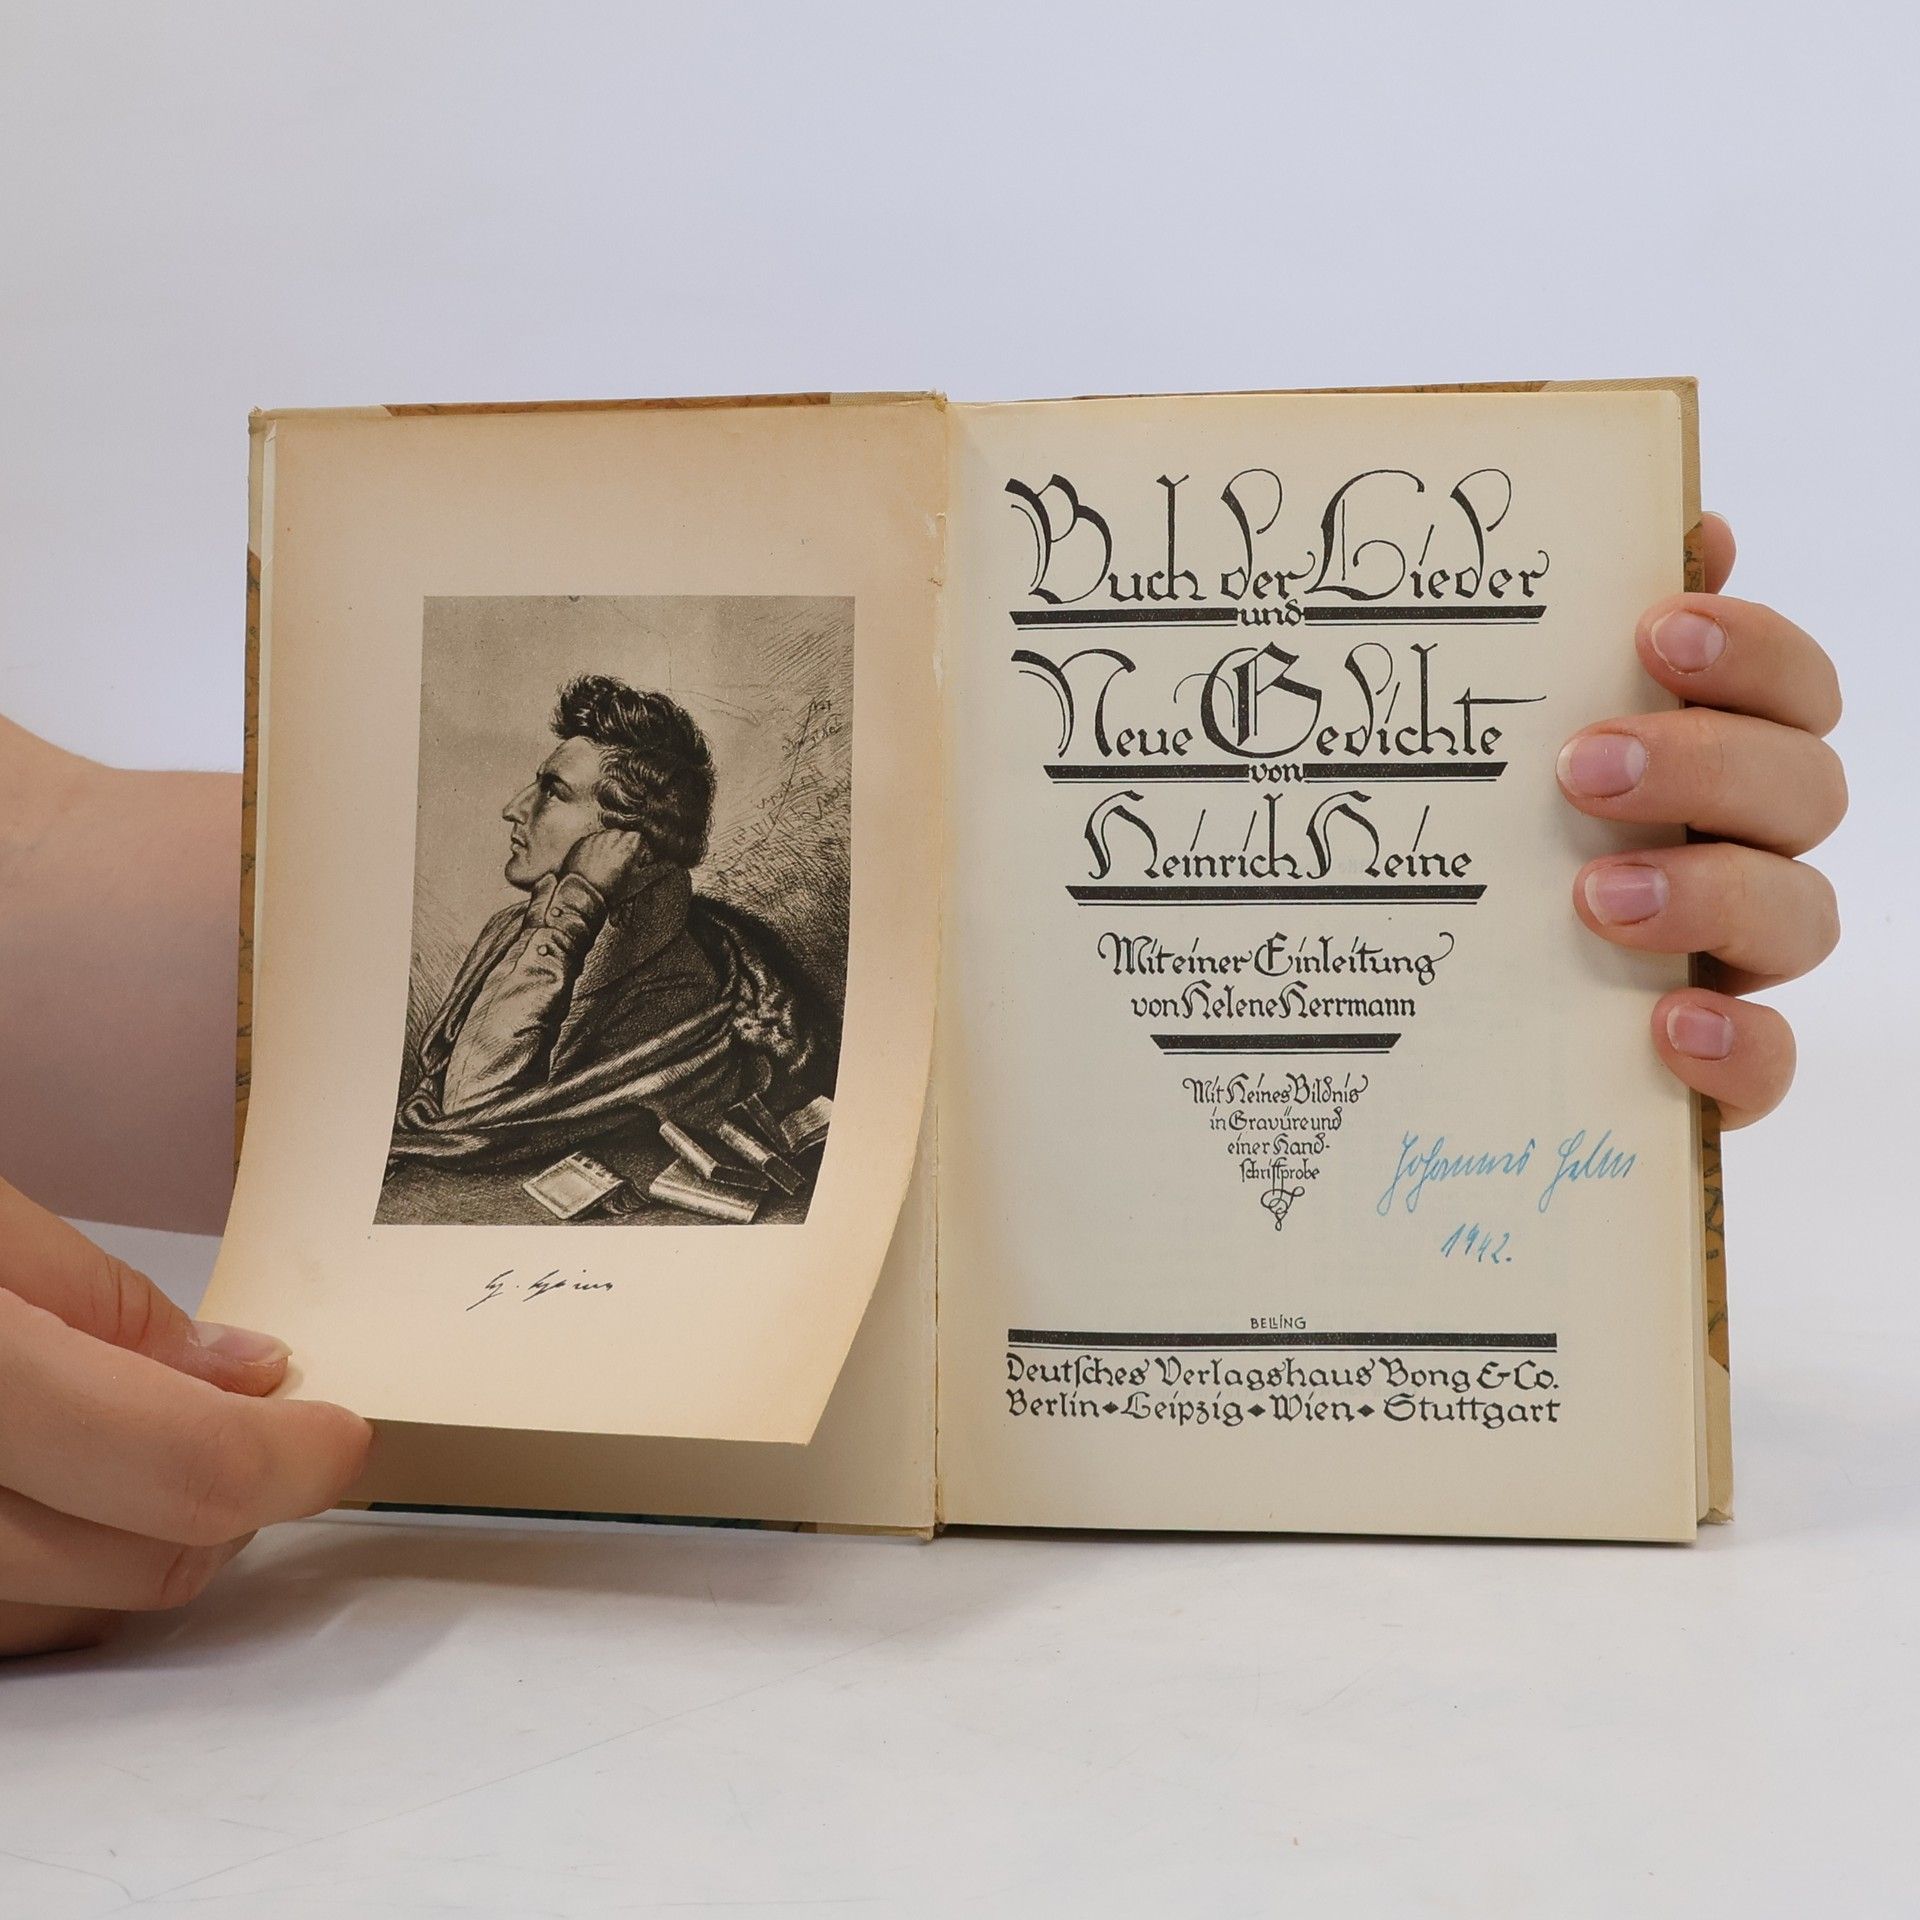 H. Heine
Buch der Lieder
und
Neue Gedichte
von
Heinrich Heine
Mit einer Einleitung
von Helene Herrmann
Mit Heines Bildnis
in Gravüre und
einer Hand-
schriftprobe
Johannes Helm
1942.
BELLING
Deutsches Verlagshaus Bong & Co.
Berlin ◆ Leipzig ◆ Wien ◆ Stuttgart